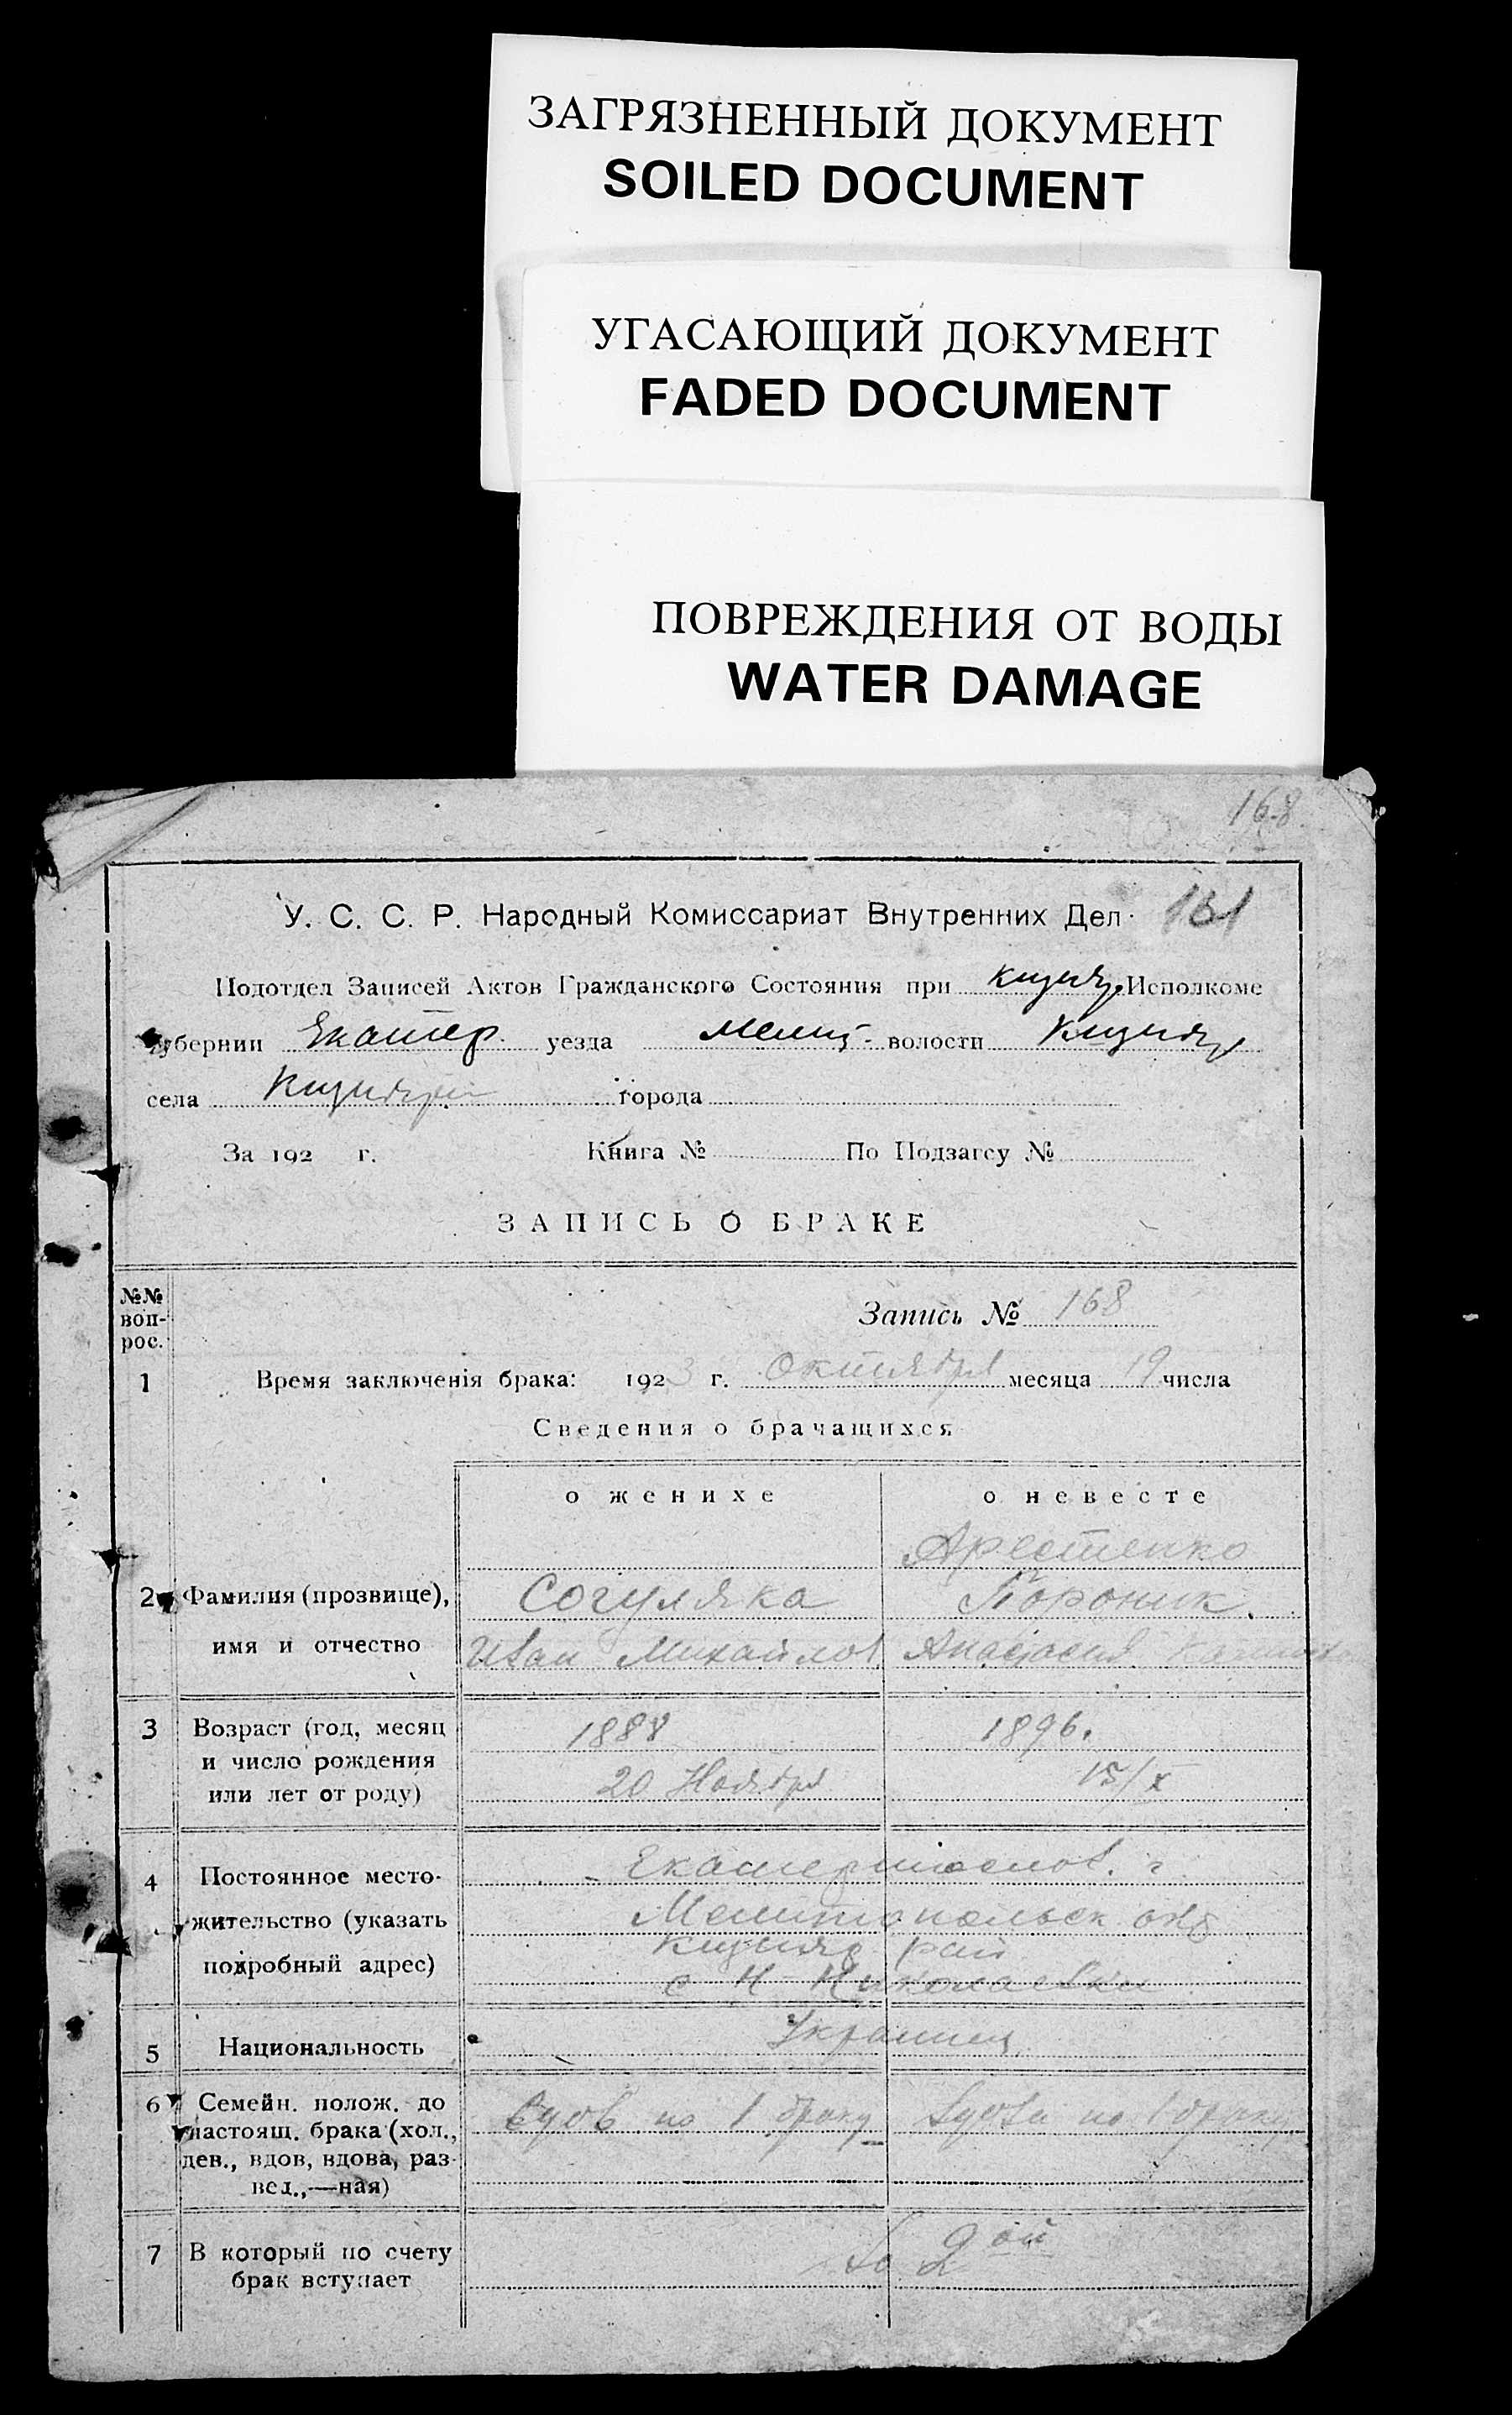 ЗАГРЯЗНЕННЫЙ ДОКУМЕНТ
SOILED DOCUMENT
УГАСАЮЩИЙ ДОКУМЕНТ
FADED DOCUMENT
ПОВРЕЖДЕНИЯ ОТ ВОДЫ
WATER DAMAGE
168
У. С. С. Р. Народный Комиссариат Внутренних Дел. 131
Подотдел Записей Актов Гражданского Состояния при Кизияр. Исполкоме
губернии Екатер. уезда Мелит. волости Кизияр
села Кизияри города
За 192 г. Книга № По Подзагсу №
ЗАПИСЬ О БРАКЕ
№№ воп-рос.
Запись № 168
1 Время заключенія брака: 1923 г. Октября месяца 19 числа
Сведения о брачащихся
о женихе о невесте
Арестенко
2 Фамилия (прозвище), Согуляка Пороник.
имя и отчество Иван Михайлов Анастасия
3 Возраст (год, месяц 1888 1896.
и число рождения 20 Ноября 15/X
или лет от роду)
4 Постоянное место- Екатеринослов. г
жительство (указать Мелитопольск окр
Кизияр рай
подробный адрес) с Н-Николаевки
5 Национальность Украинец
6 Семейн. полож. до Вдов по 1 браку вдова по 1 браку
настоящ. брака (хол.,
дев., вдов, вдова, раз-
вед.,—ная)
7 В который по счету во 2ой
брак вступает